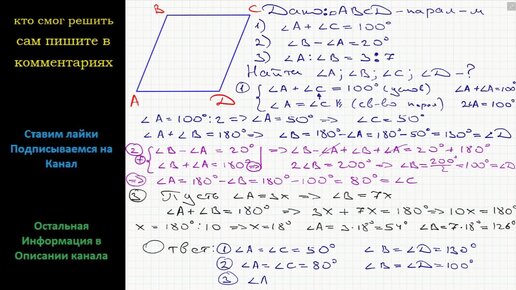 кто смог решить
сам пишите в
комментариях
Ставим лайки
Подписываемся на
Канал
Остальная
Информация в
Описании канала
B C
A D
Дано: ABCD - парал-м
1) ∠A + ∠C = 100°
2) ∠B - ∠A = 20°
3) ∠A : ∠B = 3 : 7
Найти ∠A; ∠B; ∠C; ∠D - ?
① { ∠A + ∠C = 100° (услов) ∠A + ∠A = 100°
∠A = ∠C (св-во парал) 2∠A = 100°
∠A = 100° : 2 => ∠A = 50° => ∠C = 50°
∠A + ∠B = 180° => ∠B = 180° - ∠A = 180° - 50° = 130° = ∠D
② { ∠B - ∠A = 20° => ∠B - ∠A + ∠B + ∠A = 20° + 180°
⊕ ∠B + ∠A = 180° 2∠B = 200° => ∠B = 200°/2 = 100° = ∠D
=> ∠A = 180° - ∠B = 180° - 100° = 80° = ∠C
③ Пусть ∠A = 3x => ∠B = 7x
∠A + ∠B = 180° => 3x + 7x = 180° => 10x = 180°
x = 180° : 10 => x = 18° ∠A = 3 · 18° = 54° ∠B = 7 · 18° = 126°
Ответ: ① ∠A = ∠C = 50° ∠B = ∠D = 130°
② ∠A = ∠C = 80° ∠B = ∠D = 100°
③ ∠A